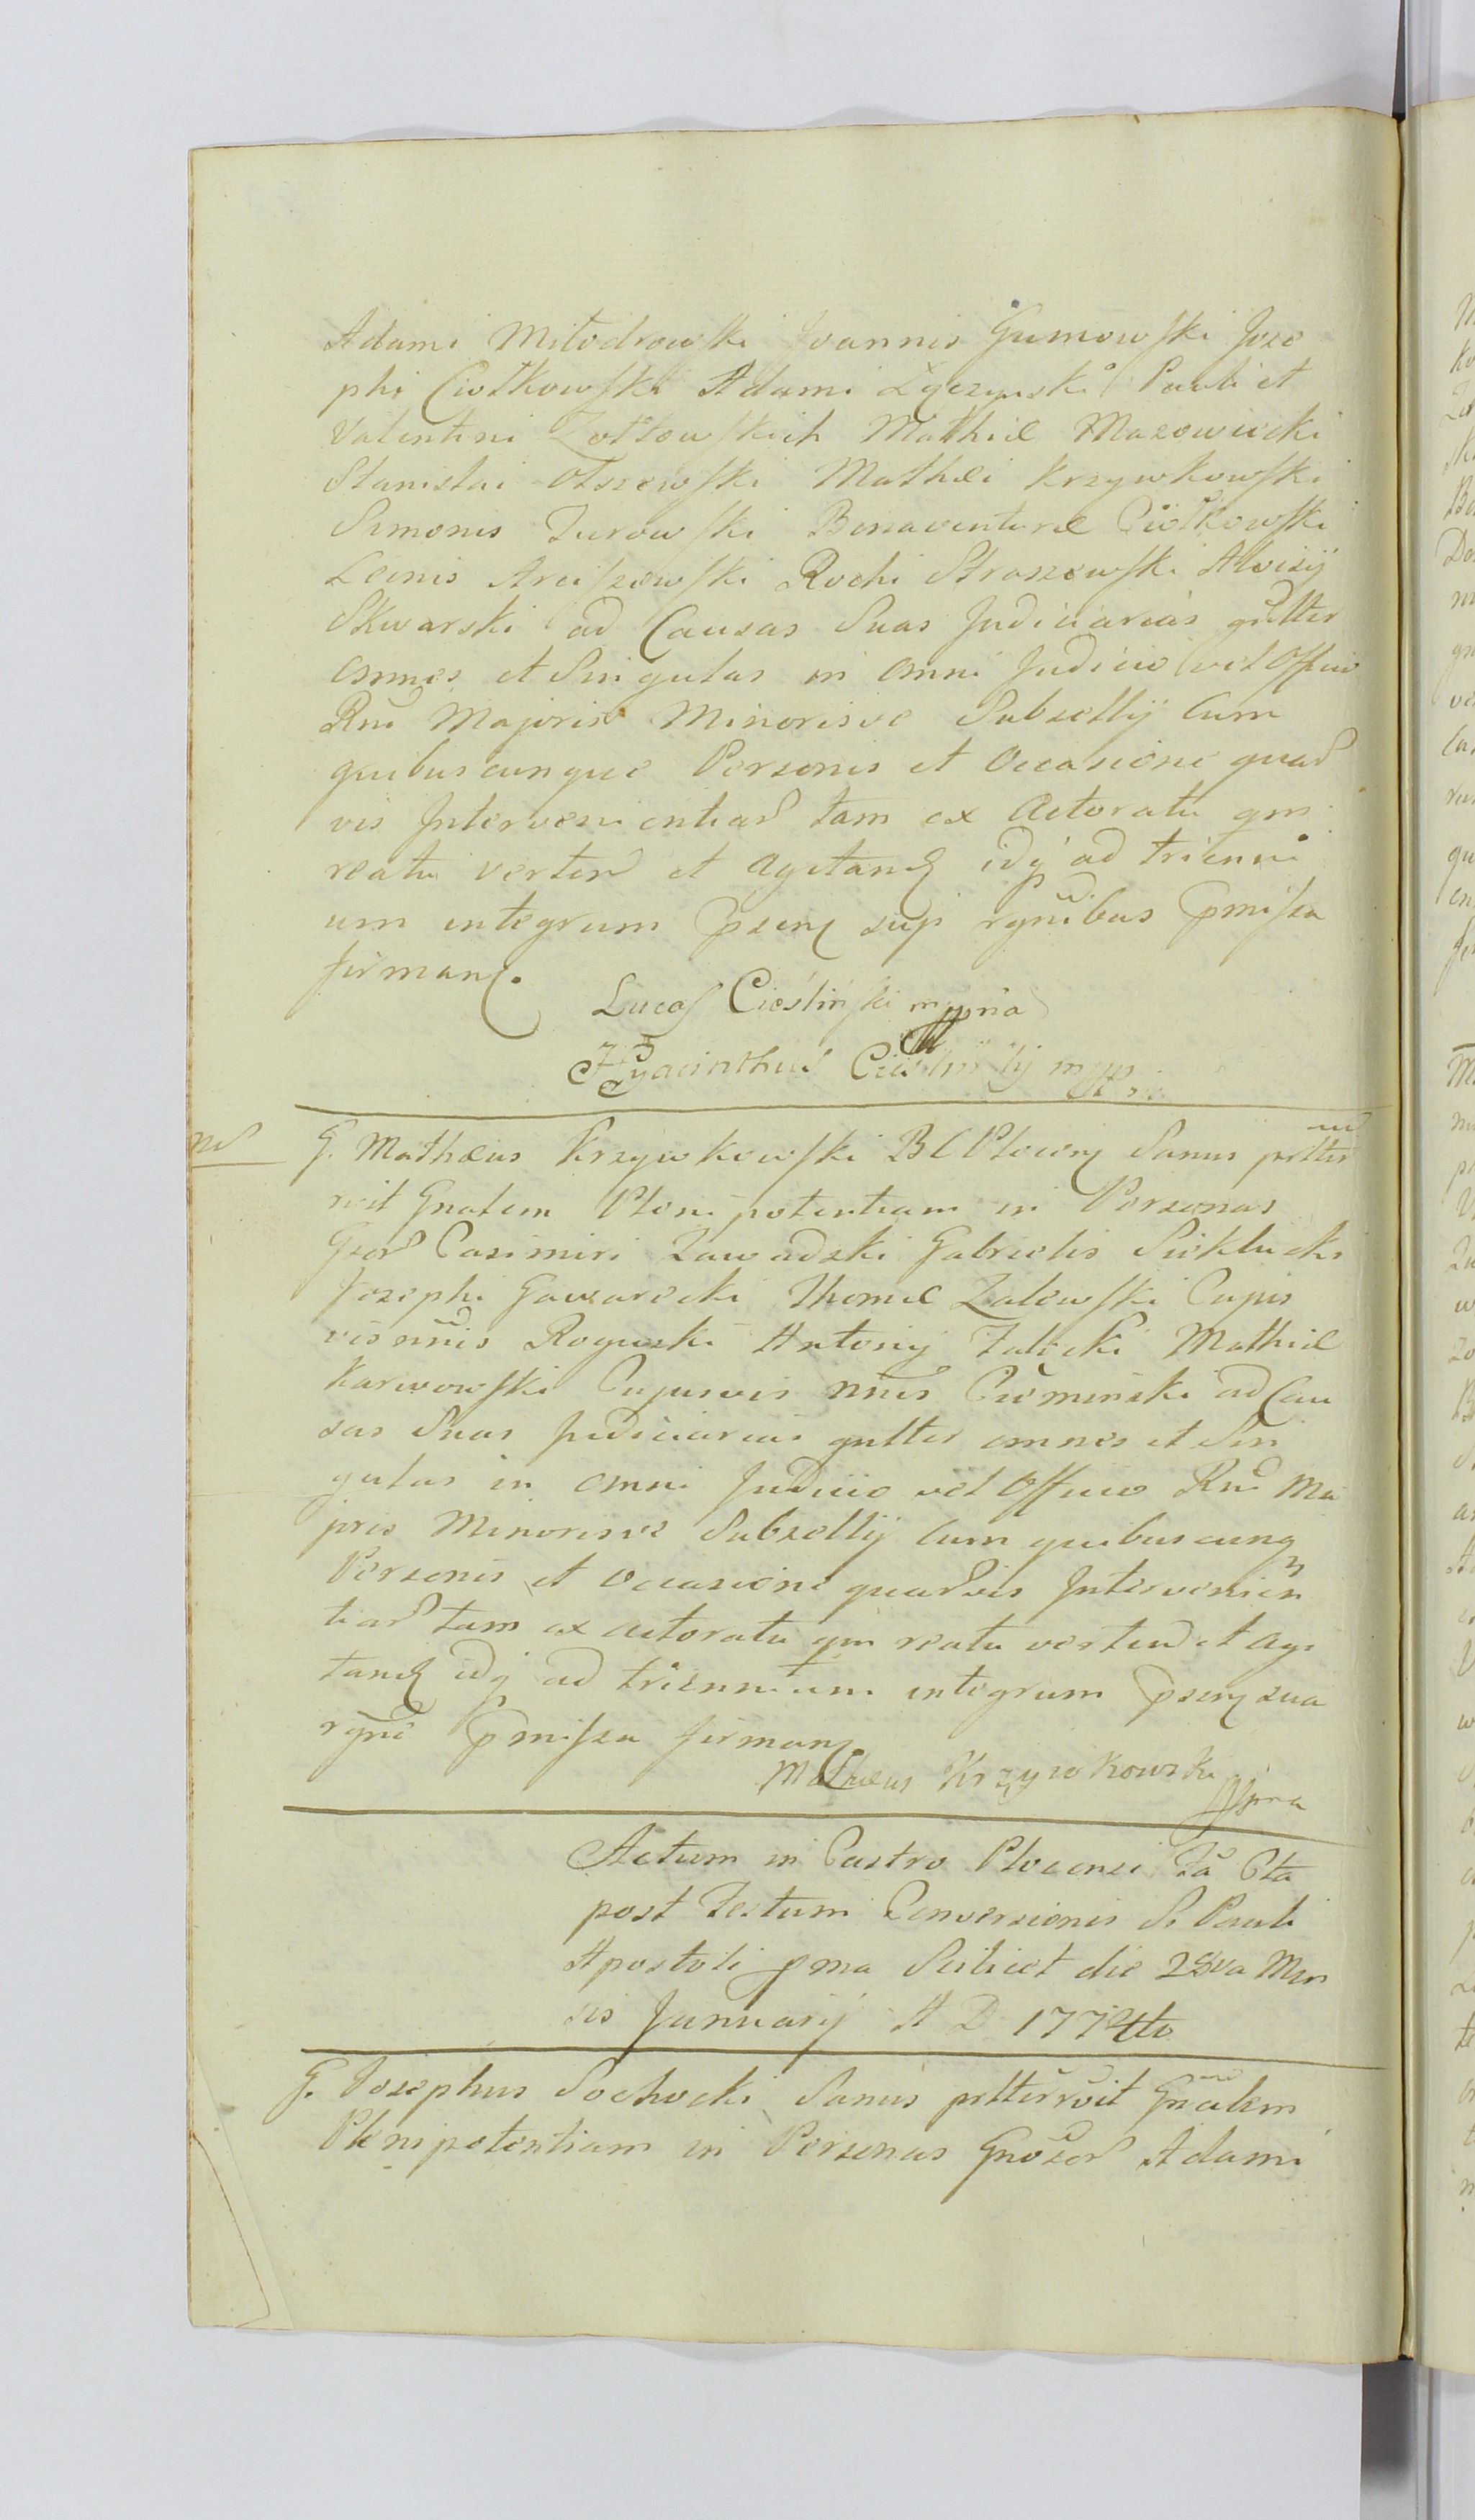 Adami Miłodrowski Joannis Gumowski Joze
phi Ciołkowski Adami Łęczynski Pauli et
Valentini Zołtowskich Mathiæ Mazowiecki
Stanislai Olszewski Mathæi Krzywkowski
Simonis Zurowski Bonaventuræ Ciołkowski
Leonis Arciszewski Rochi Straszewski Aloisij
Skwarski ad Causas Suas Judiciarias gnlter
omnes et Singulas in omni Judicio vel Officio
Rni Majoris Minorisve Subsellij Cum
quibuscunque Personis et Occasione quar
vis Intervenientiar tam ex Actoratu qm
reatu verten et Agitand idq ad trienni
um integrum psen sup rgnibus pmissa
firman.
Lucas Cieśliński mppria
Hyacinthus mpp
Nd
G. Mathæus Krzywkowski B C Plocen Sanus prlter
rvit Gnalem Plenipotentiam in Personas
Gsor Casimiri Zawadzki Gabrielis Sieklucki
Josephi Gawarecki Thomæ Zalewski Cujus
vis nnis Roguski Antonij Załęcki Mathiæ
Karwowski Cujusvis nnis Ciemiński ad Cau
sas Suas Judiciarias gnlter omnes et Sin
gulas in omni Judicio vel Officio Rni Ma
joris Minorisve Subsellij Cum quibuscunq
Personis et Occasione quarvis Intervenien
tiar tam ex actoratu qm reatu verten et agi
tand idq ad triennium integrum psen sua
rgne pmissa firman.
Mathæus Krzywkowski
mppria
Actum in Castro Plocensi Fa Cta
post Festum Conversionis S. Pauli
Apostoli pma Scilicet die 28va Men
sis Januarij A D 1774to
G. Josephus Sochocki Sanus prlterrvit Gnalem
Plenipotentiam in Personas Gnosor Adami